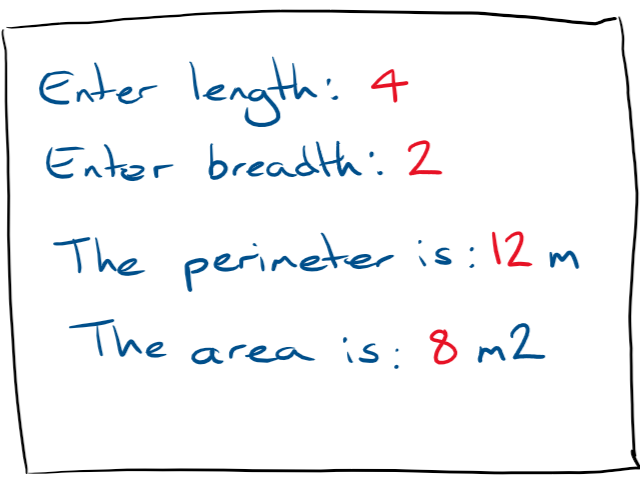 Enter length: 4
Enter breadth: 2
The perimeter is: 12 m
The area is: 8 m2